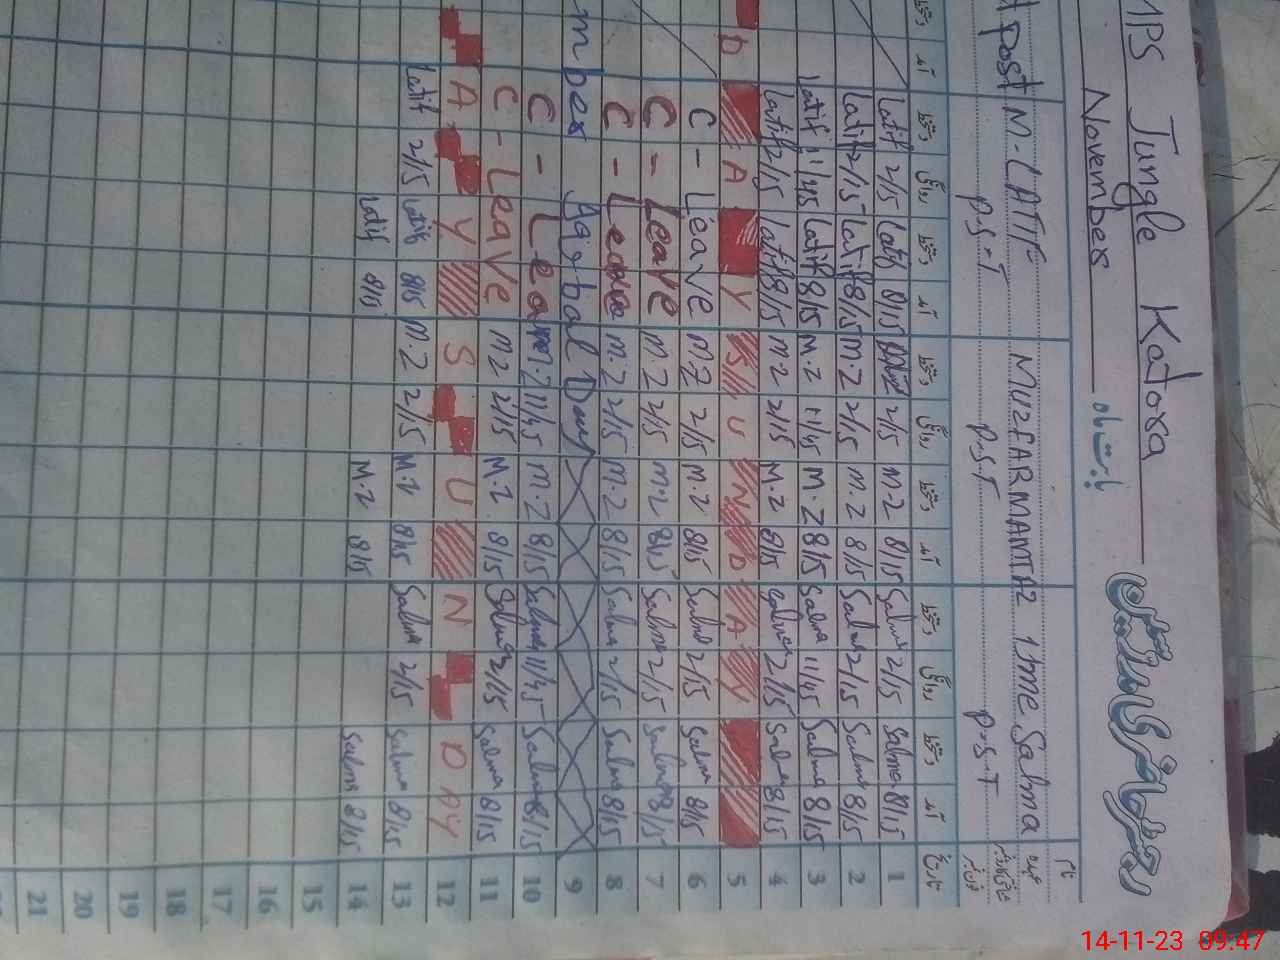 MPS Jungle Katora
Novembers بابت ماہ
نام
Post M-LATIF MUZFARMAMTAZ Ume Salma عہدہ
P.S.T P.S.T P.S.T
دستخط آمد دستخط روانگی دستخط آمد دستخط روانگی دستخط آمد دستخط روانگی دستخط آمد تاریخ
Latif 2/15 Latif 8/15 2/15 M.Z 8/15 Salma 2/15 Salma 8/15 1
Latif 2/15 Latif 8/15 M.Z 2/15 M.Z 8/15 Salma 2/15 Salma 8/15 2
Latif 11/45 Latif 8/15 M.Z 11/45 M.Z 8/15 Salma 11/45 Salma 8/15 3
Latif 2/15 Latif 8/15 M.Z 2/15 M.Z 8/15 Salma 2/15 Salma 8/15 4
D A Y S U N D A Y 5
C - Leave M.Z 2/15 M.Z 8/15 Salma 2/15 Salma 8/15 6
C - Leave M.Z 2/15 M.Z 8/15 Salma 2/15 Salma 8/15 7
C - Leave M.Z 2/15 M.Z 8/15 Salma 2/15 Salma 8/15 8
mber Iqbal Day 9
C - Leave M.Z 11/45 M.Z 8/15 Salma 11/45 Salma 8/15 10
C - Leave M.Z 2/15 M.Z 8/15 Salma 2/15 Salma 8/15 11
A Y S U N D AY 12
Latif 2/15 Latif 8/15 M.Z 2/15 M.Z 8/15 Salma 2/15 Salma 8/15 13
Latif 8/15 M.Z 8/15 Salma 8/15 14
15
16
17
18
19
20
21
14-11-23 09:47